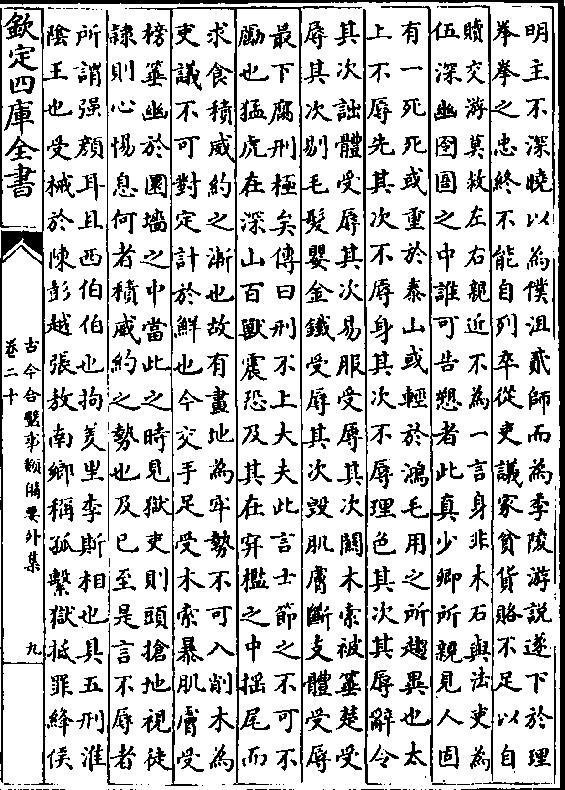 明主不深曉以為僕沮貳師而為李陵游說遂下於理
拳拳之忠終不能自列卒從吏議家貧貨賂不足以自
贖交游莫救左右親近不為一言身非木石與法吏為
伍深幽囹圄之中誰可告愬者此真少卿所親見人固
有一死死或重於泰山或輕於鴻毛用之所趨異也太
上不辱先其次不辱身其次不辱理色其次其辱辭令
其次詘體受辱其次易服受辱其次關木索被箠楚受
辱其次剔毛髮嬰金鐵受辱其次毀肌膚斷支體受辱
最下腐刑極矣傳曰刑不上大夫此言士節之不可不
勵也猛虎在深山百獸震恐及其在穽檻之中搖尾而
求食積威約之漸也故有畫地為牢勢不可入削木為
吏議不可對定計於鮮也今交手足受木索暴肌膚受
榜箠幽於圜墻之中當此之時見獄吏則頭搶地視徒
隸則心惕息何者積威約之勢也及已至是言不辱者
所謂强顏耳且西伯伯也拘羑里李斯相也具五刑淮
陰王也受械於陳彭越張敖南鄉稱孤繫獄抵罪絳侯
欽定四庫全書
古今合璧事類備要外集
卷二十
九